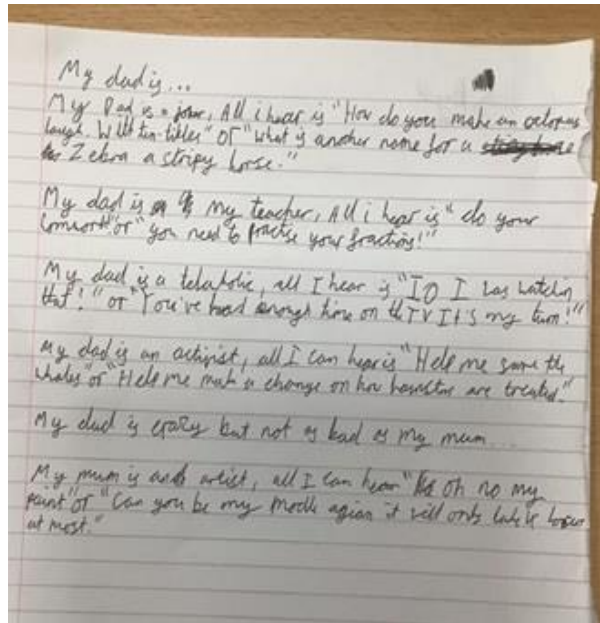 My dad is...
My Dad is a joker, All i hear is "How do you make an octopus
laugh. With ten-tickles" or "what is another name for a
Zebra a stripy horse."
My dad is my teacher, All i hear is "do your
or "you need to practise your fractions!"
My dad is a telaholic, all I hear is "I was watching
that!" or "You've had enough time on the TV It's my turn!"
My dad is an activist, all I can hear is "Help me save the
whales" or "Help me make a change on how hamsters are treated."
My dad is crazy but not as bad as my mum...
My mum is an artist, all I can hear "oh no my
paint" or "Can you be my modle agian it will only take 12 hours
at most."